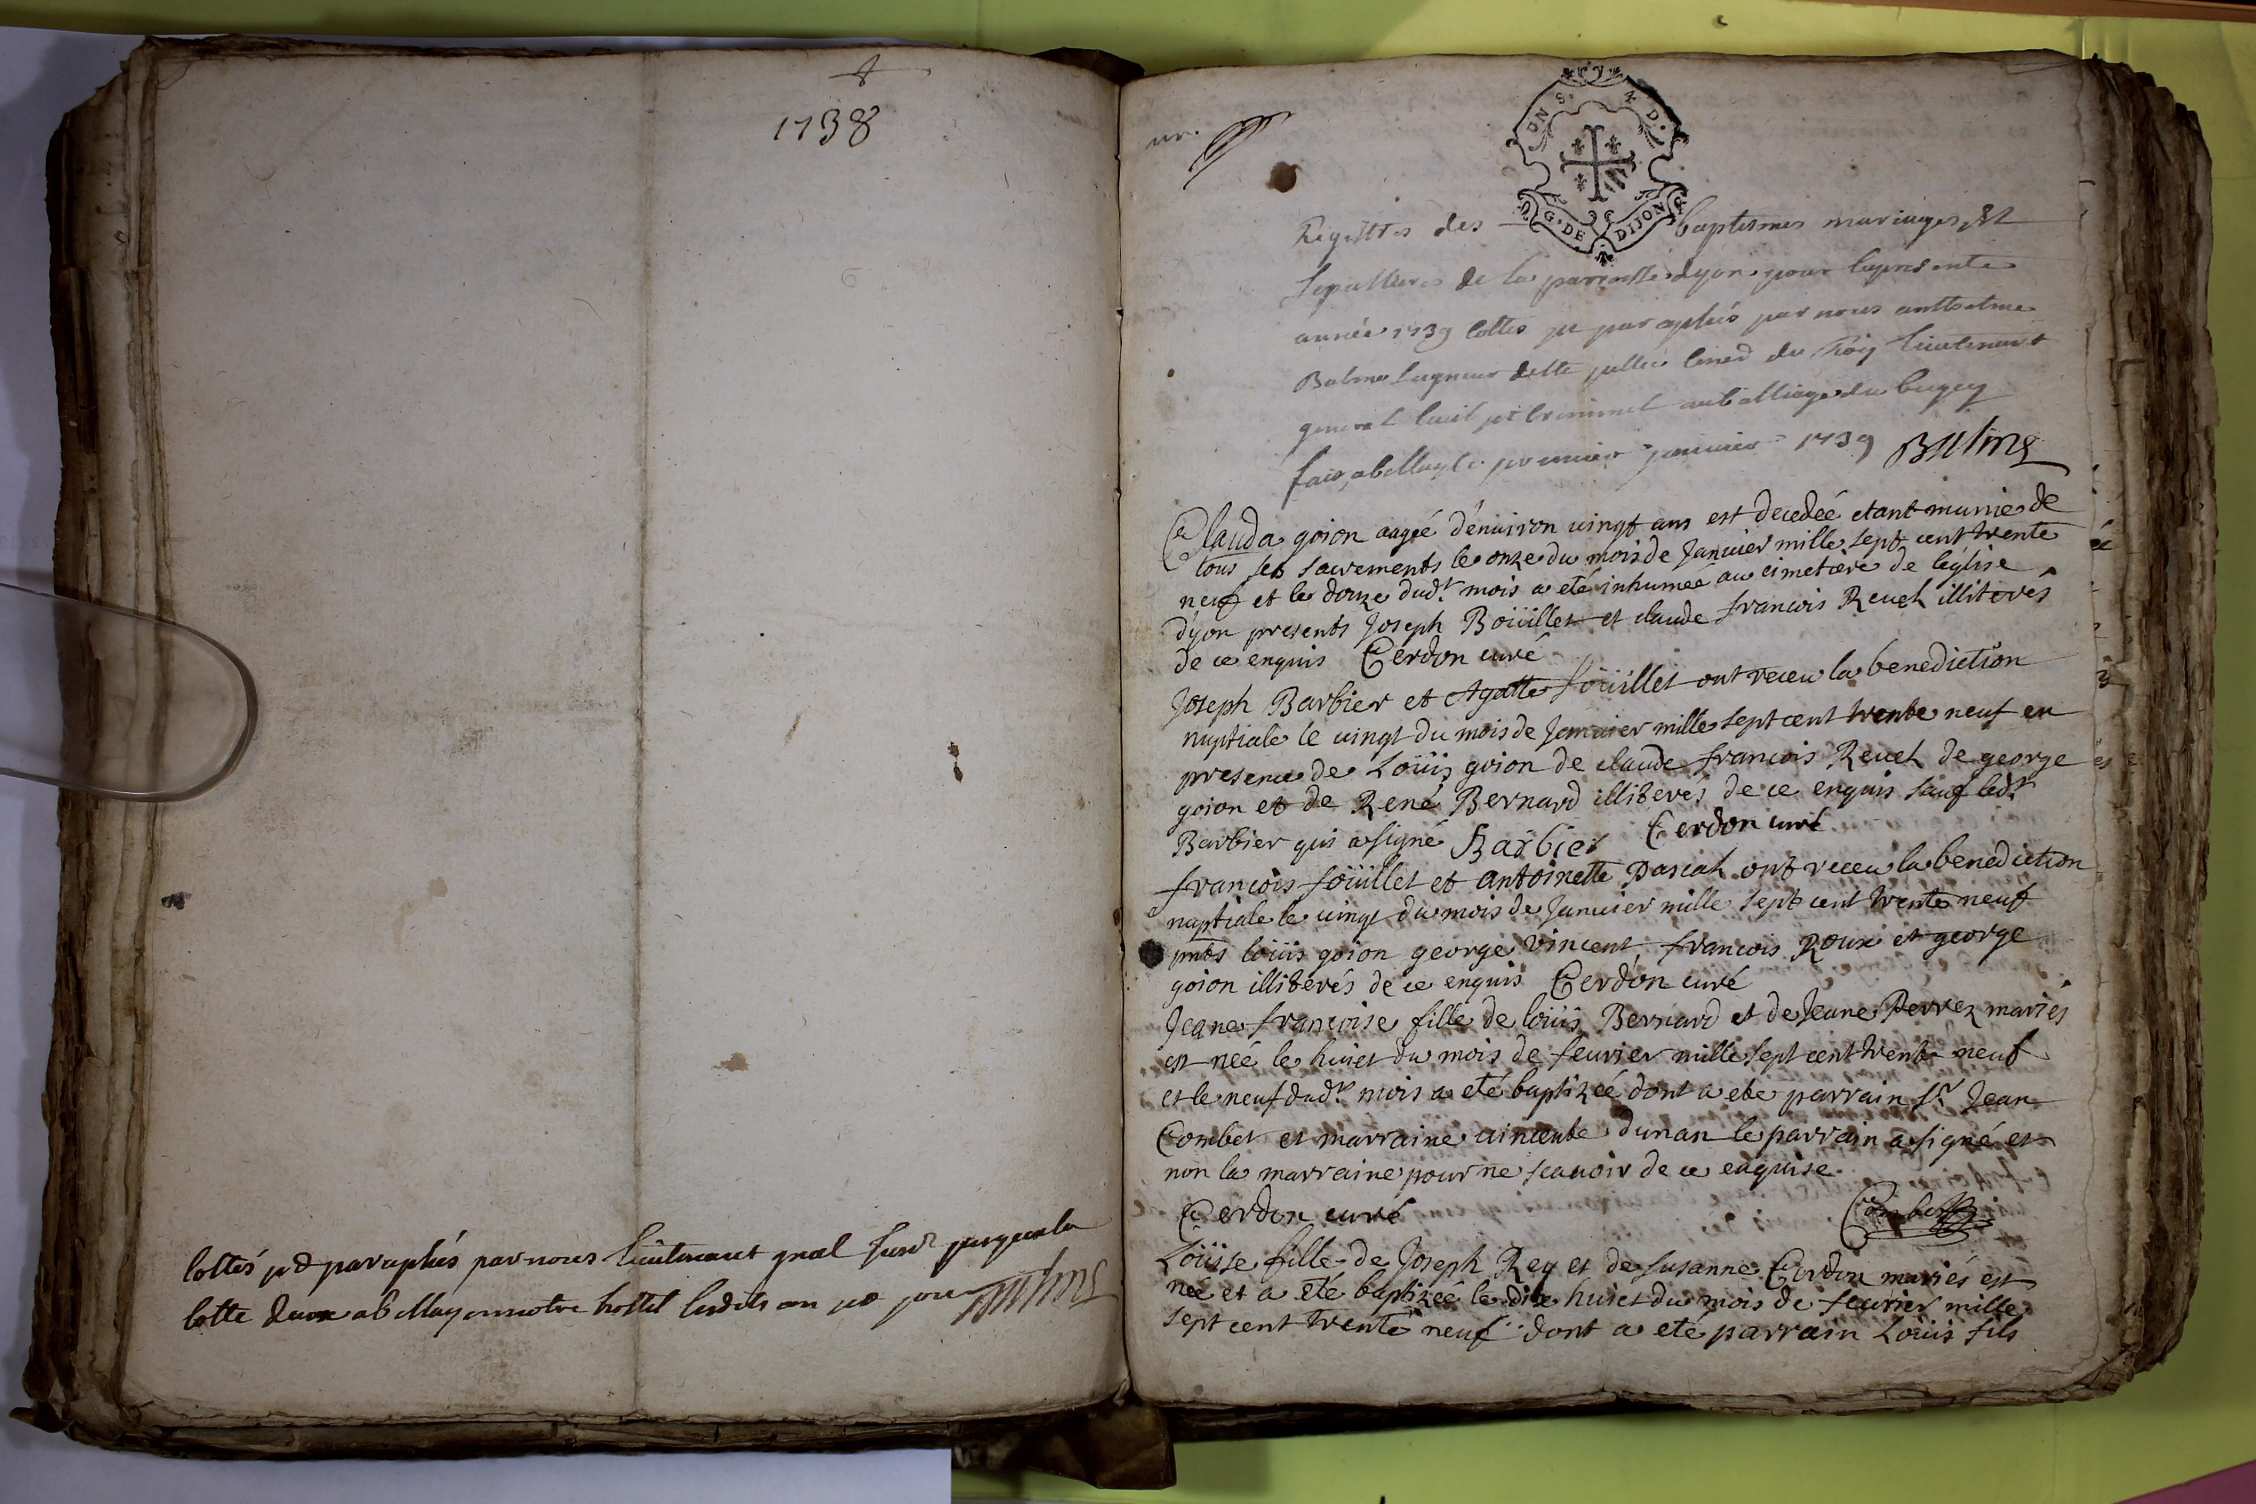 1738
cottés et paraphés par nous lieutenant gnal jusques la
cotte au abellay en notre hostel lesdits an et jour Balme
un.
UN S. 4 D.
G. DE DIJON
Registres des baptesmes mariages et
sepultures de la paroisse dyon pour la presente
année 1739 cottés et paraphés par nous anthelme
Balme seigneur du Roy lieutenant
general civil et criminel au balliage du bugey
fait abellay le premier janvier 1739 Balme
Clauda goion aageé d'enuiron uingt ans est decedeé etant munie de
tous ses sacrements le onze du mois de Januier mille sept cent trente
neuf et le douze dudt mois a eté inhumeé au cimetiere de l'église
d'yon presents Joseph Boüillet et claude francois Reuel illiterés
de ce enquis Cerdon curé
Joseph Barbier et Agatte foüillet ont receu la benediction
nuptiale le uingt du mois de Januier mille sept cent trente neuf en
presence de Loüis goion de claude francois Reuel de george
goion et de René Bernard illiterés de ce enquis sauf ledt
Barbier qui a signé Barbier Cerdon curé
francois foüillet et antoinette Pascal ont receu la benediction
nuptiale le uingt du mois de Januier mille sept cent trente neuf
pnts loüis goion george vincent francois Roux et george
goion illiterés de ce enquis Cerdon curé
Jeane francoise fille de loüis Bernard et de Jeane Perret mariés
est neé le huict du mois de feurier mille sept cent trente neuf
et le neuf dudt mois a eté baptizeé dont a ete parrain sr Jean
Combet et marraine uincente dunan le parrain a signé et
non la marraine pour ne scauoir de ce enquise
Cerdon curé Combet
Loüise fille de Joseph Rey et de susanne Cerdon mariés est
neé et a eté baptizeé le dix huict du mois de feurier mille
sept cent trente neuf dont a eté parrain Loüis fils